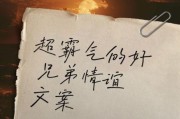 超霸气的好
兄弟情谊
文案